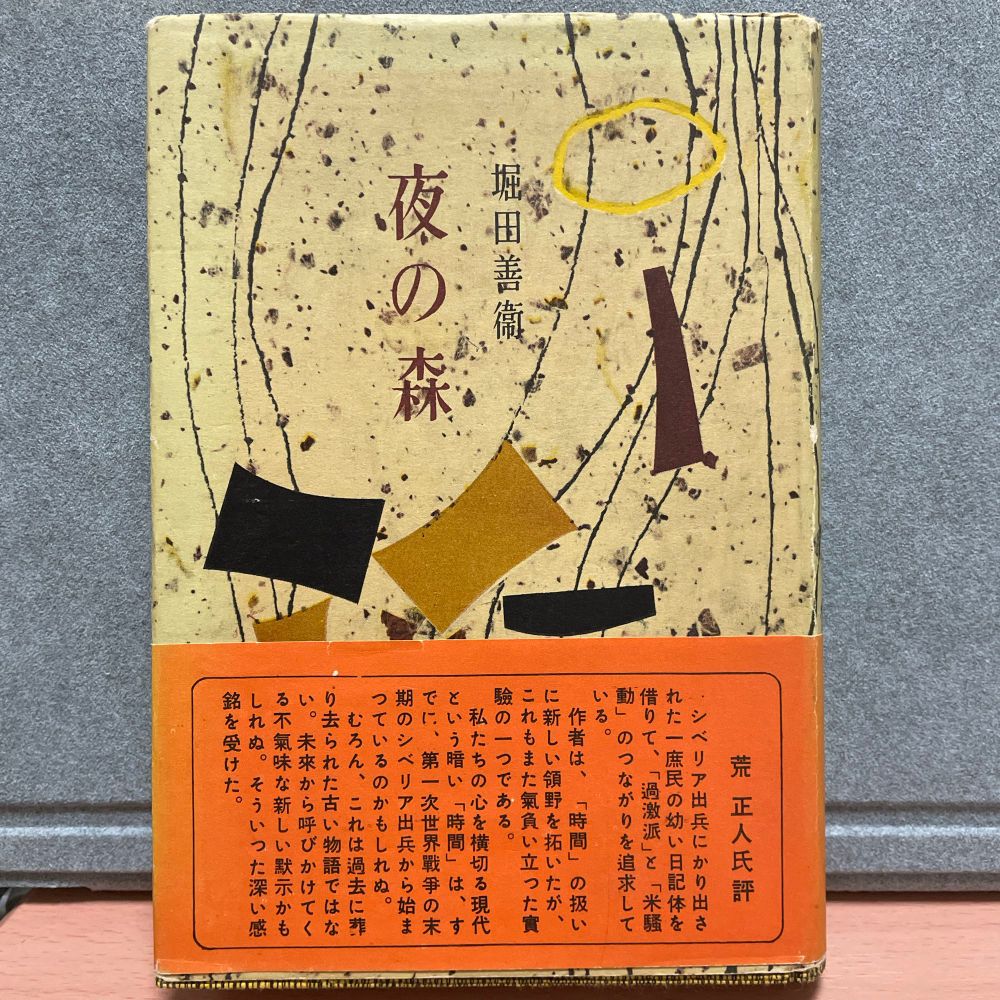 堀田善衞
夜の森
荒 正人氏評
‥シベリア出兵にかり出さ
れた一庶民の幼い日記体を
借りて、「過激派」と「米騒
動」のつながりを追求して
いる。
作者は、「時間」の扱い
に新しい領野を拓いたが、
これもまた氣負い立った實
驗の一つである。
私たちの心を横切る現代
という暗い「時間」は、す
でに、第一次世界戰爭の末
期のシベリア出兵から始ま
つているのかもしれぬ。
むろん、これは過去に葬
り去られた古い物語ではな
い。未來から呼びかけてく
る不氣味な新しい默示かも
しれぬ。そういつた深い感
銘を受けた。